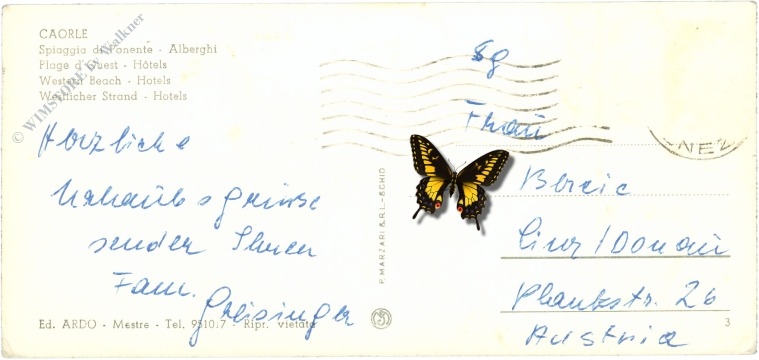 CAORLE
Spiaggia di Ponente - Alberghi
Plage d'Ouest - Hôtels
Western Beach - Hotels
Westlicher Strand - Hotels
© WIMSTORE by Walkner
Herzliche
Urlaubsgrüsse
sendet Ihnen
Fam.
Greisinger
Ed. ARDO - Mestre - Tel. 951017 - Ripr. vietata
P. MARZARI S.R.L. - SCHIO
NEZ
Sg
Frau
Berzic
Linz/Donau
Plankstr. 26
Austria
3